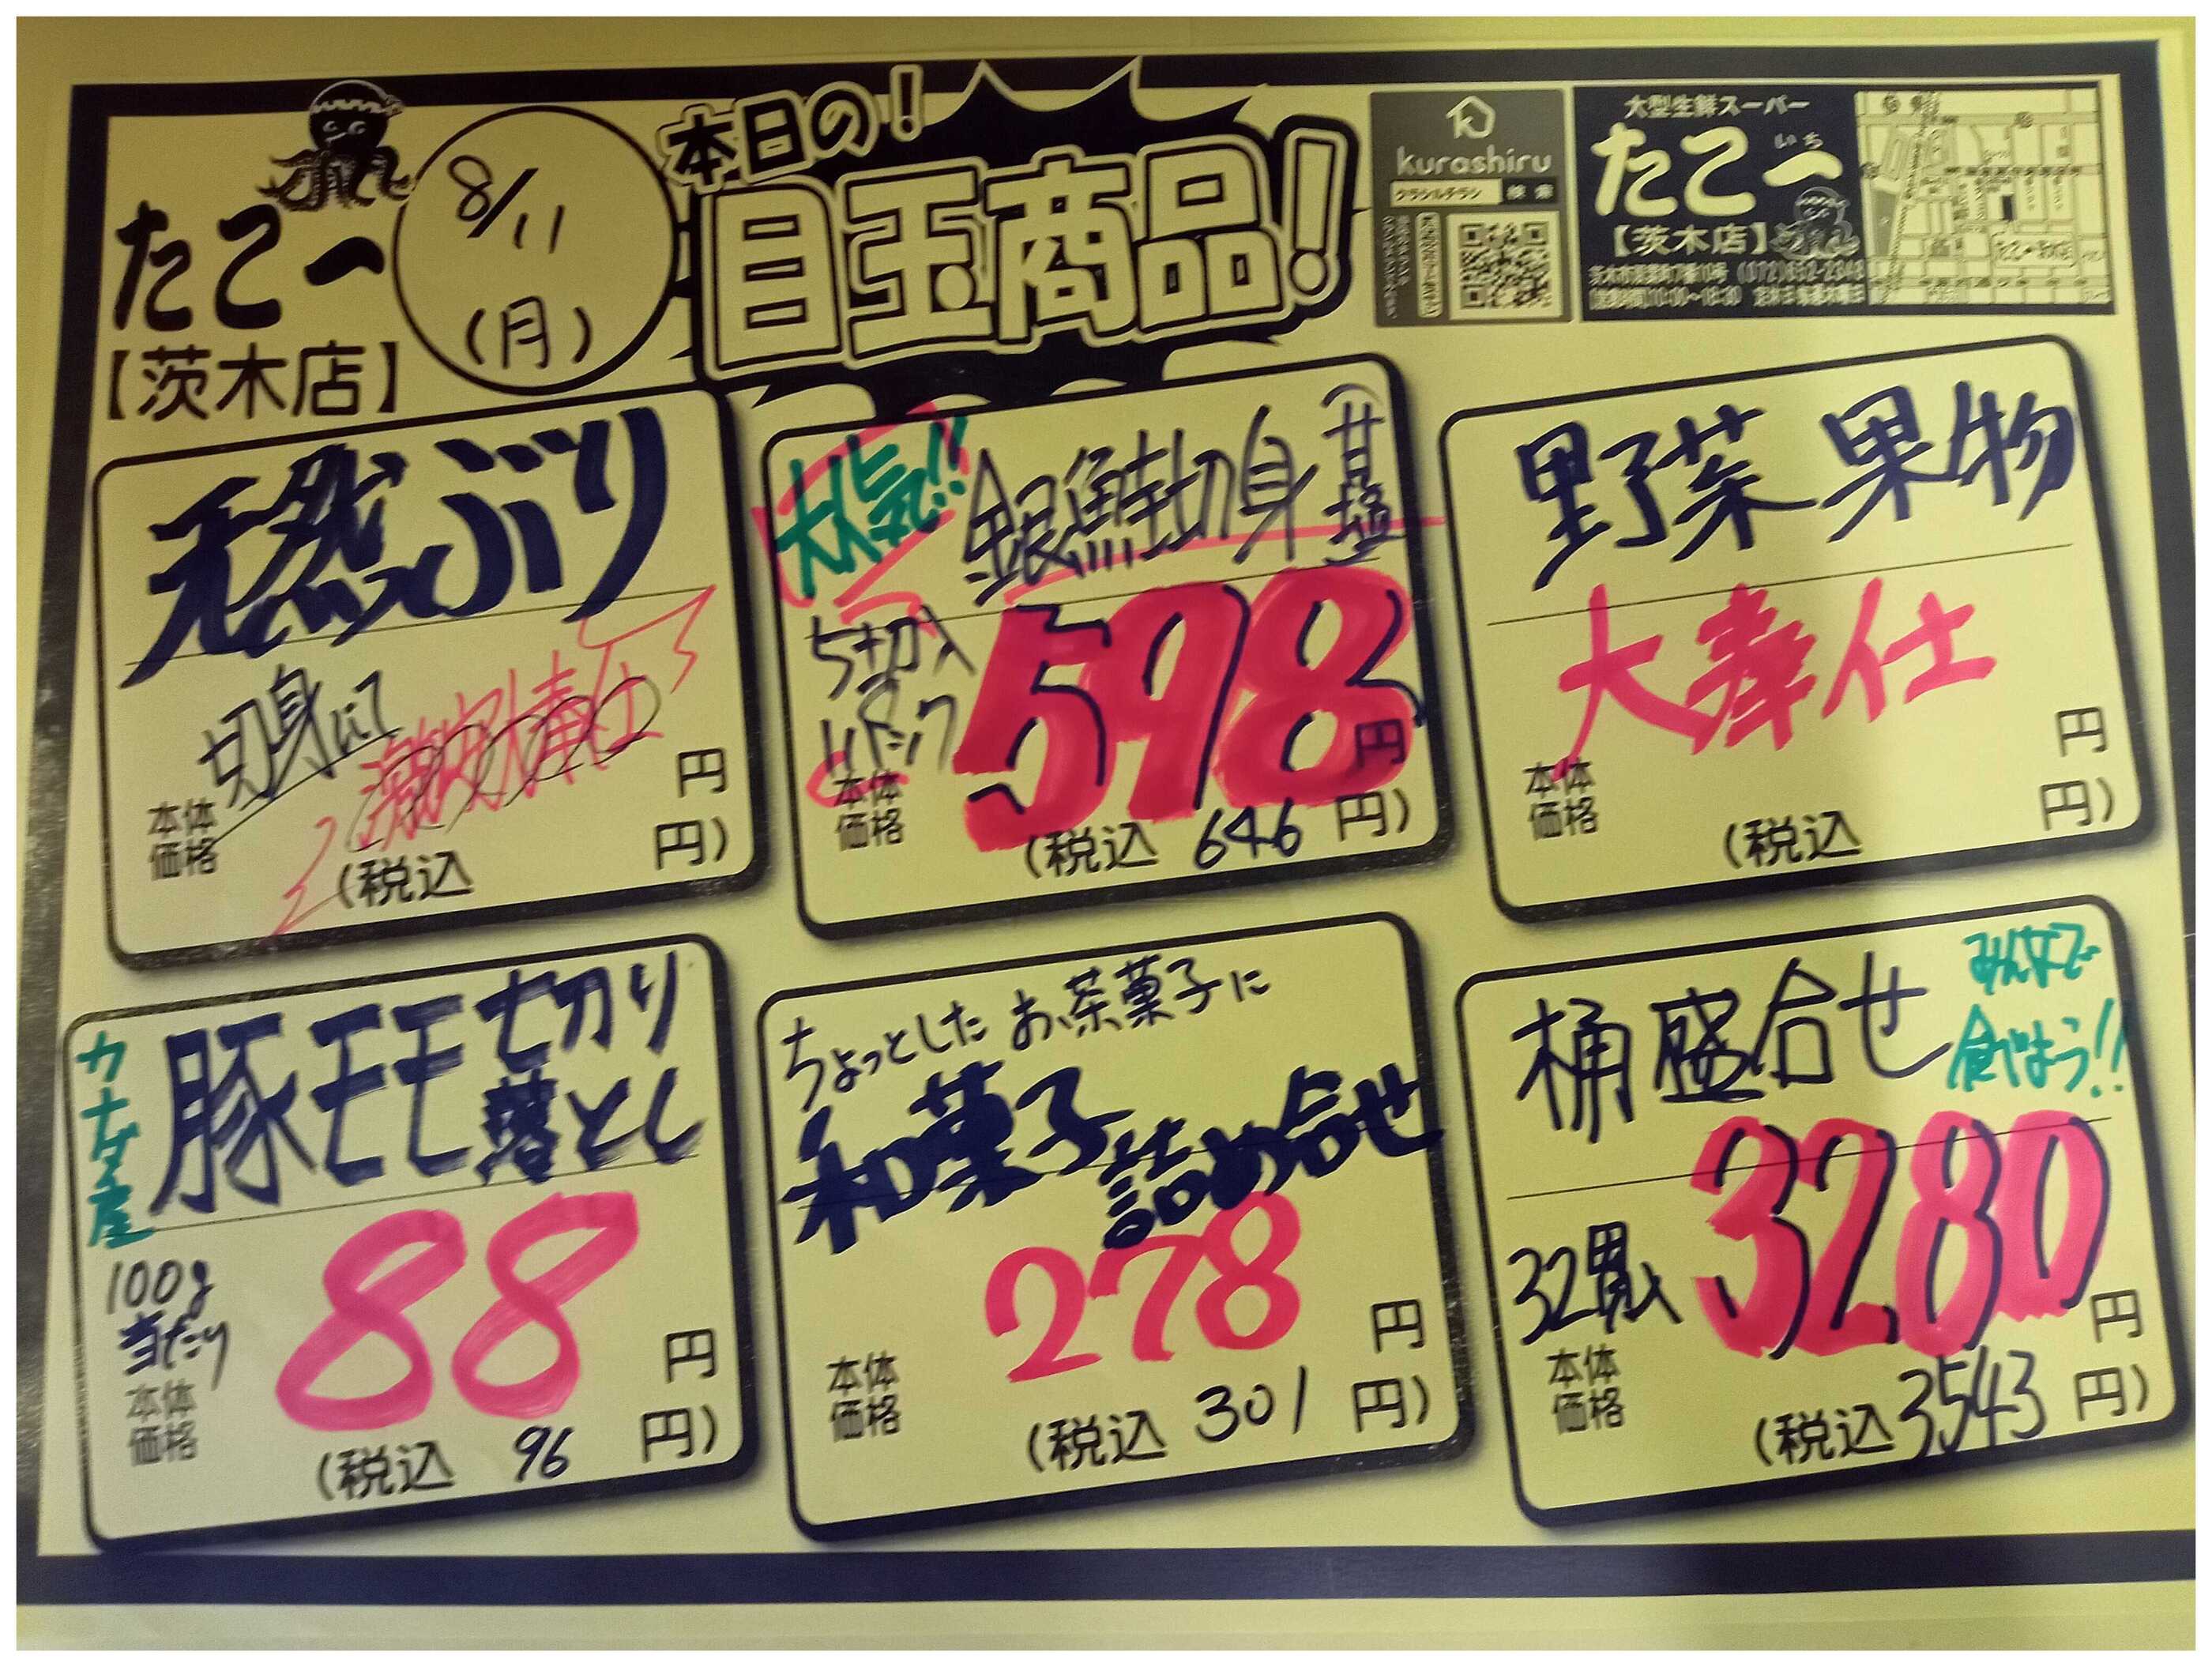 たこ一
【茨木店】
8/11
(月)
本日の!
目玉商品!
kurashiru
クラシルチラシ 検索
大型生鮮スーパー
たこ一
いち
【茨木店】
天然ぶり
切身にて
激安大奉仕
本体
価格
円
(税込 円)
大人気!!
銀鮭切身(甘塩)
5切入
1パック
598
本体
価格
円
(税込 646 円)
野菜 果物
大奉仕
本体
価格
円
(税込 円)
カナダ産
豚モモ切り
落とし
100g
当たり
88
本体
価格
円
(税込 96 円)
ちょっとした お茶菓子に
和菓子詰め合せ
278
本体
価格
円
(税込 301 円)
桶盛合せ
みんなで
食べよう!!
32貫入
3280
本体
価格
円
(税込 3543 円)